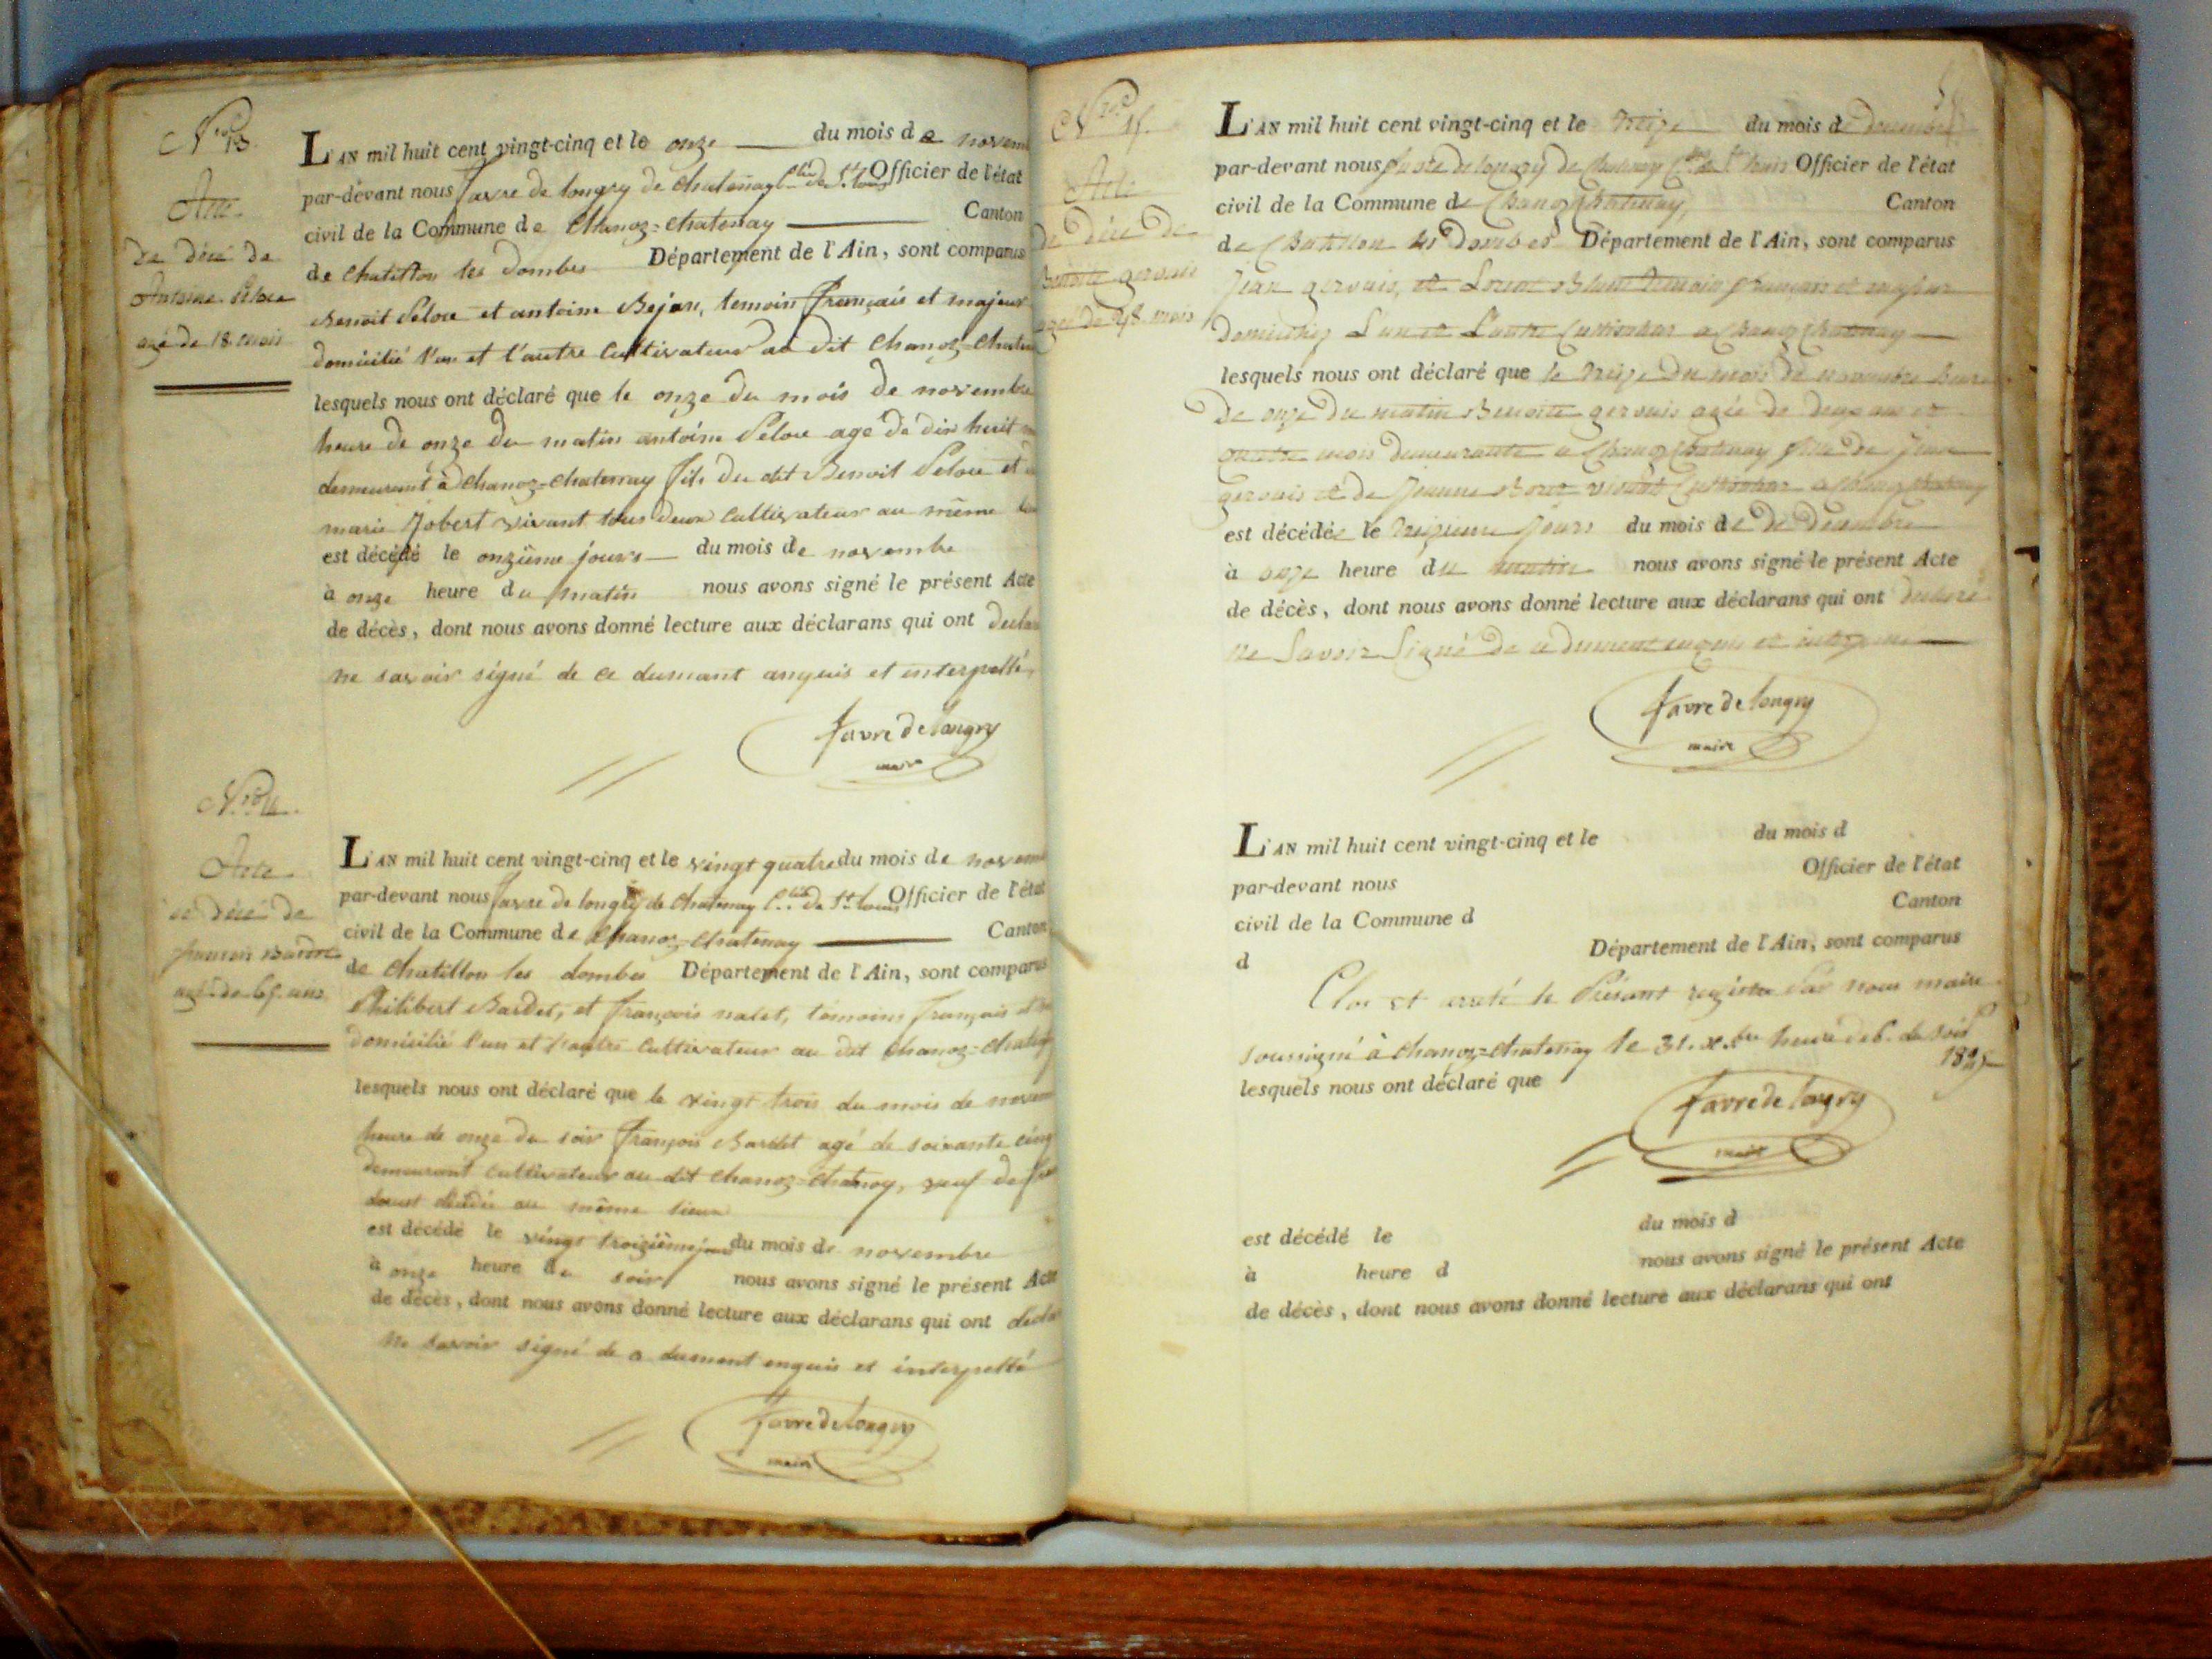 Nro 13.
Acte
de décé de
Antoine Pelou
agé de 18. mois
L'AN mil huit cent vingt-cinq et le onze du mois de novem
par-devant nous favre de longry de Chatenay Clier de St. louis Officier de l'état
civil de la Commune de Chanoz=chatenay Canton
de chatillon les Dombes Département de l'Ain, sont comparus
Benoit Pelou et antoine Bejan, temoin français et majeur
domicilié l'un et l'autre cultivateur au dit Chanoz-Chaten
lesquels nous ont déclaré que le onze du mois de novembre
heure de onze du matin antoine Pelou agé de dix huit
demeurant à Chanoz=chatenay fils du dit Benoit Pelou et
marie Jobert vivant tous deux cultivateur au même
est décédé le onzième jours du mois de novembre
à onze heure du matin nous avons signé le présent Acte
de décès, dont nous avons donné lecture aux déclarans qui ont decla
ne savoir signé de ce dument anquis et interpellé
favre de longry
maire
Nro 14.
Acte
de décé de
françois Bardet
agé de 65. ans
L'AN mil huit cent vingt-cinq et le vingt quatre du mois de novem
par-devant nous favre de longry de Chatenay Clier de St. louis Officier de l'état
civil de la Commune de Chanoz-chatenay Canton
de Chatillon les dombes Département de l'Ain, sont comparus
Philibert Bardet, et françois nalet, témoins français et
domicilié l'un et l'autre cultivateur au dit Chanoz=chaten
lesquels nous ont déclaré que le vingt trois du mois de novem
heure de onze du soir françois Bardet agé de soixante cinq
demeurant cultivateur au dit Chanoz=Chatnoy, veuf de
décédée au même lieux
est décédé le vingt troizième jour du mois de novembre
à onze heure du soir nous avons signé le présent Acte
de décès, dont nous avons donné lecture aux déclarans qui ont decla
ne savoir signé de a dument enquis et interpellé
favre de longry
maire
Nro 15.
Acte
de décé de
Benoite gervais
agé de 28. mois
L'AN mil huit cent vingt-cinq et le treize du mois de decembre
par-devant nous favre de longry de Chatenay Officier de l'état
civil de la Commune de Chanoz Chatenay, Canton
de Chatillon les Dombes Département de l'Ain, sont comparus
Jean gervais, et Blanc temoin français et majeur
domiciliez L'un et L'autre Cultivateur a Chanoz Chatenay
lesquels nous ont déclaré que le treize du mois de novembre heure
de onze du matin Benoite gervais agée de deux ans et
quatre mois demeurante a Chanoz Chatenay fille de Jean
gervais et de Jeanne vivant Cultivateur a Chanoz chatenay
est décédée le treizieme jours du mois de de decembre
à onze heure du matin nous avons signé le présent Acte
de décès, dont nous avons donné lecture aux déclarans qui ont declaré
ne Savoir Signé de ce dument enquis et interpellé
favre de longry
maire
L'AN mil huit cent vingt-cinq et le du mois d
par-devant nous Officier de l'état
civil de la Commune d Canton
d Département de l'Ain, sont comparus
Clos et areté le Présent registre Par nous maire
soussigné à Chanoz=chatenay le 31. xbre heure de 6. du soir
1825
lesquels nous ont déclaré que
favre de longry
maire
est décédé le du mois d
à heure d nous avons signé le présent Acte
de décès, dont nous avons donné lecture aux déclarans qui ont